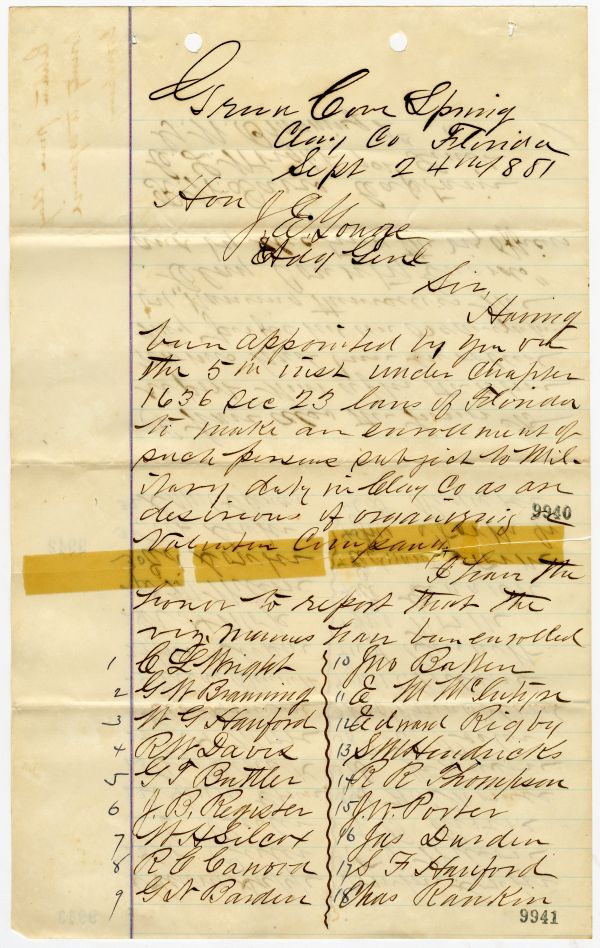 Green Cove Spring
Clay Co Florida
Sept 24th 1881
Hon J. E. Yonge
Adg Genl
Sir,
Having
been appointed by you on
the 5th inst under Chapter
1636 Sec 23 laws of Florida
to make an enrollment of
such persons subject to Mil-
itary duty in Clay Co as are
desirious of organizing a
9940
Volunteer Company
I have the
honor to report that the
names have been enrolled
1 C L Wright
2 G W Branning
3 W G Hanford
4 R W Davis
5 G T Buttler
6 J. B. Register
7 W H Silcox
8 R C Canova
9 G N Barden
10 Jno Batten
11 E M McIntyre
12 Edward Rigby
13 S M Hendricks
14 R R Thompson
15 Jn. Porter
16 Jas Durden
17 S F Hanford
18 Chas Rankin
9941